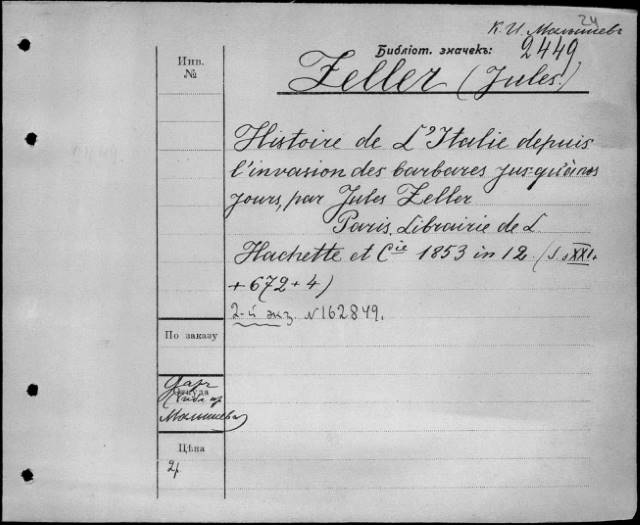 К. И. Малышевъ
24
Библіот. значекъ:
2449
Инв.
№
Zeller (Jules)
Histoire de L'Italie depuis
l'invasion des barbares jusqu'à nos
jours, par Jules Zeller
Paris, Librairie de L.
Hachette et Cie 1853 in 12. (1. XXI.
+ 672 + 4)
2-й экз. N 162849.
По заказу
Даръ
Откуда
Малышева
Цѣна
2р